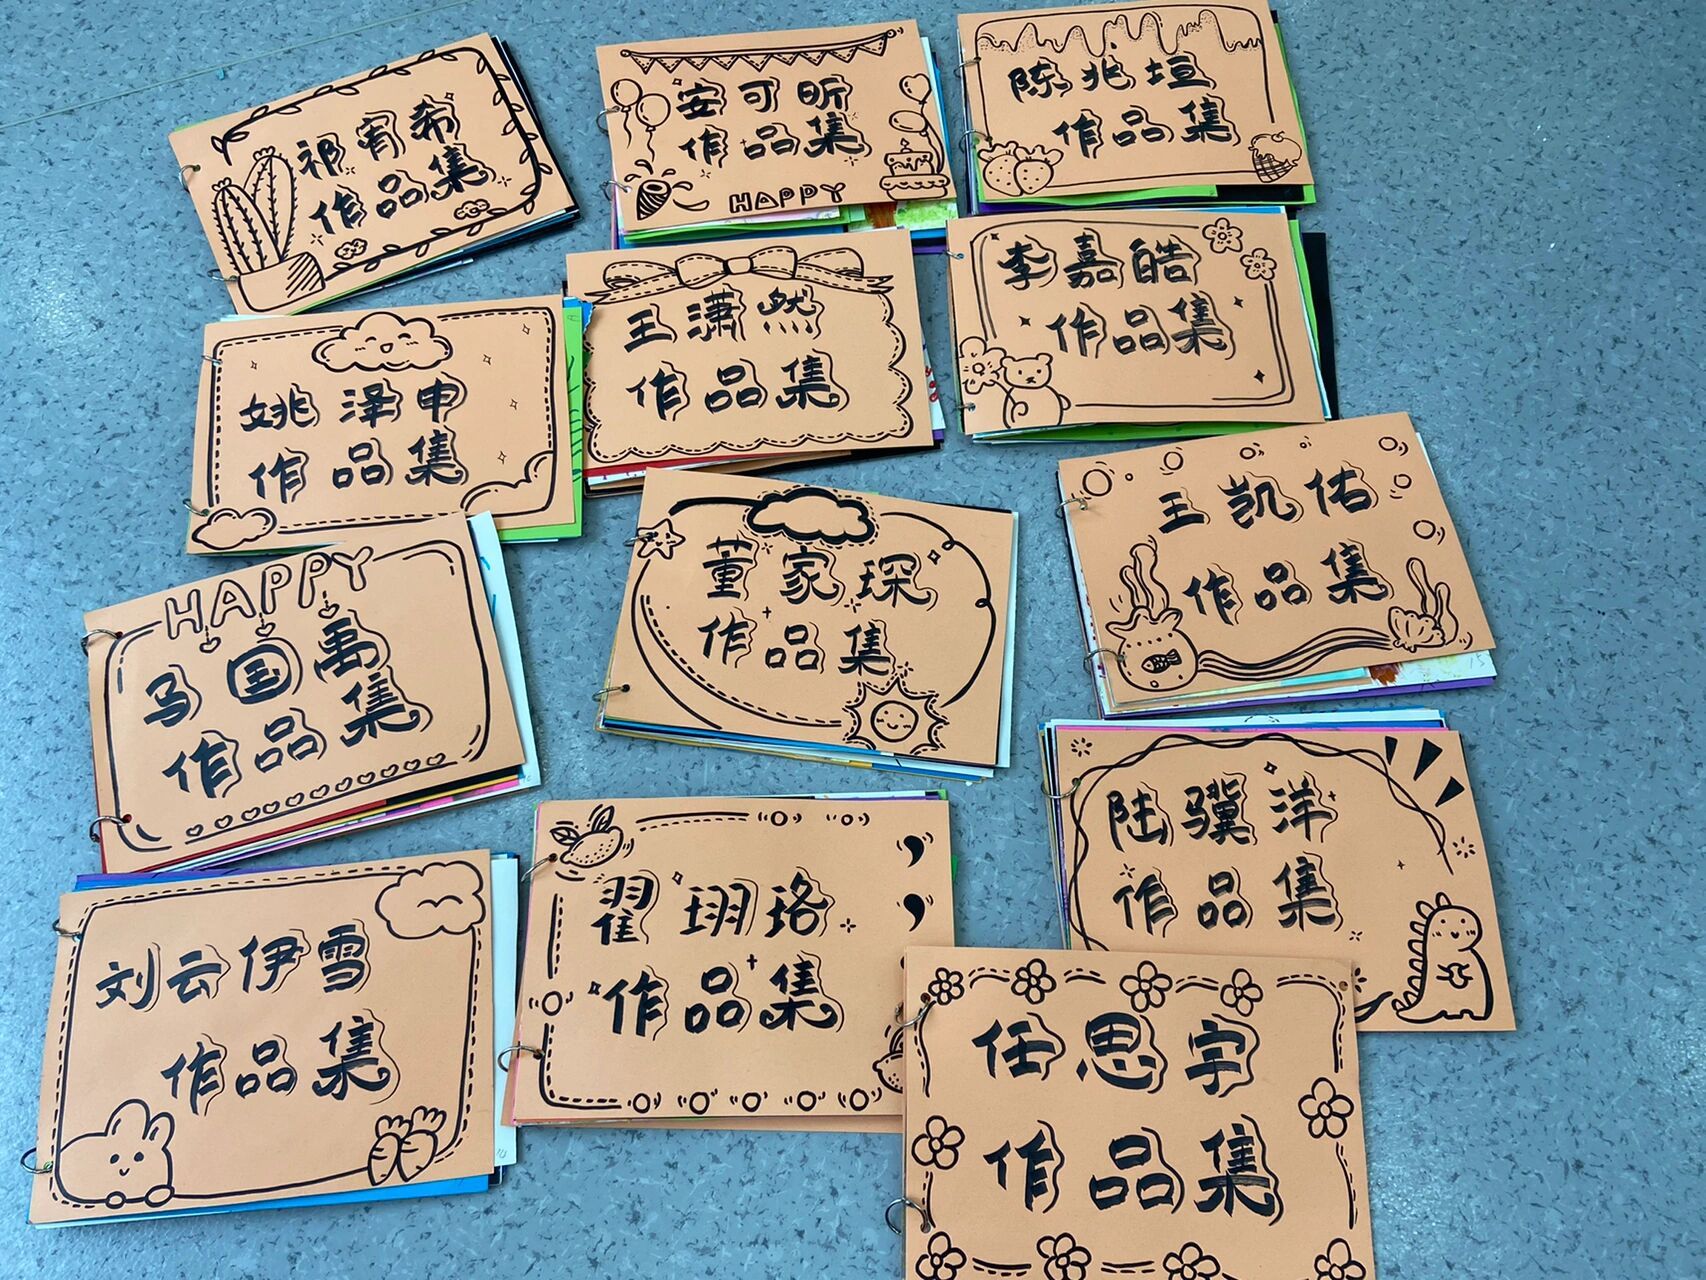 祁宥希
作品集
安可昕
作品集
HAPPY
陈兆垣
作品集
姚泽申
作品集
王潇然
作品集
李嘉皓
作品集
HAPPY
马国禹
作品集
董家琛
作品集
王凯佑
作品集
刘云伊雪
作品集
翟珝珞
作品集
陆骥洋
作品集
任思宇
作品集